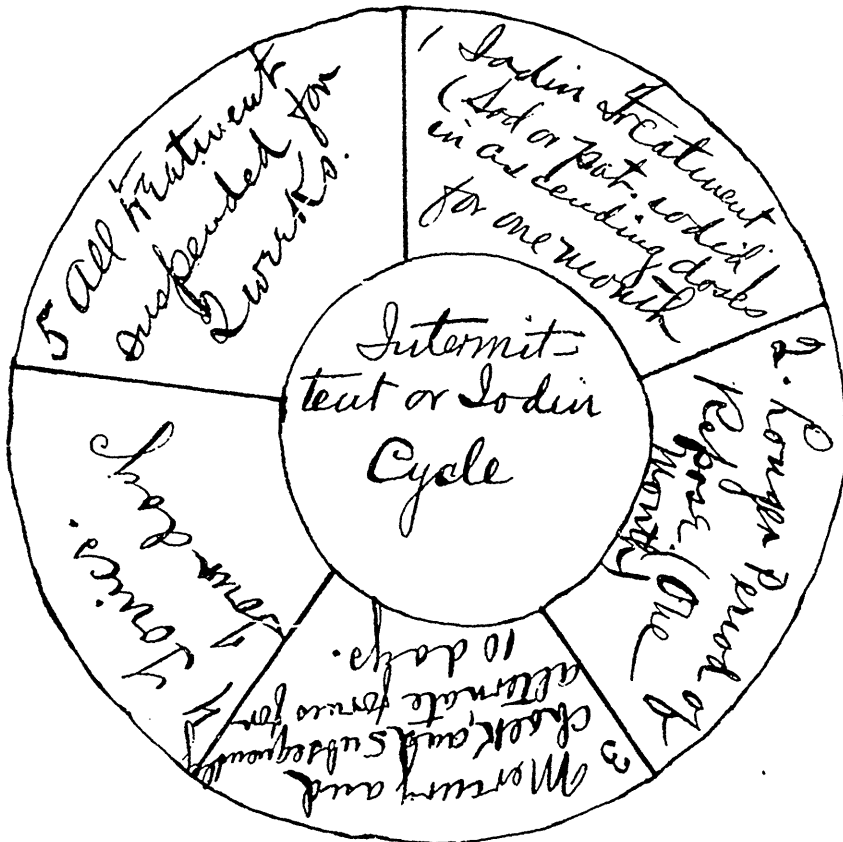 Intermit-
tent or Iodin
Cycle
1 Iodin Treatment
(Sod or pot. iodid
in ascending doses
for one month
2. Longer Period of
Repose. (One
Month)
3 Mercury and
chalk, and subsequently
alternate forms for
10 days.
4 Tonics.
5 All treatment
suspended for
2 weeks.